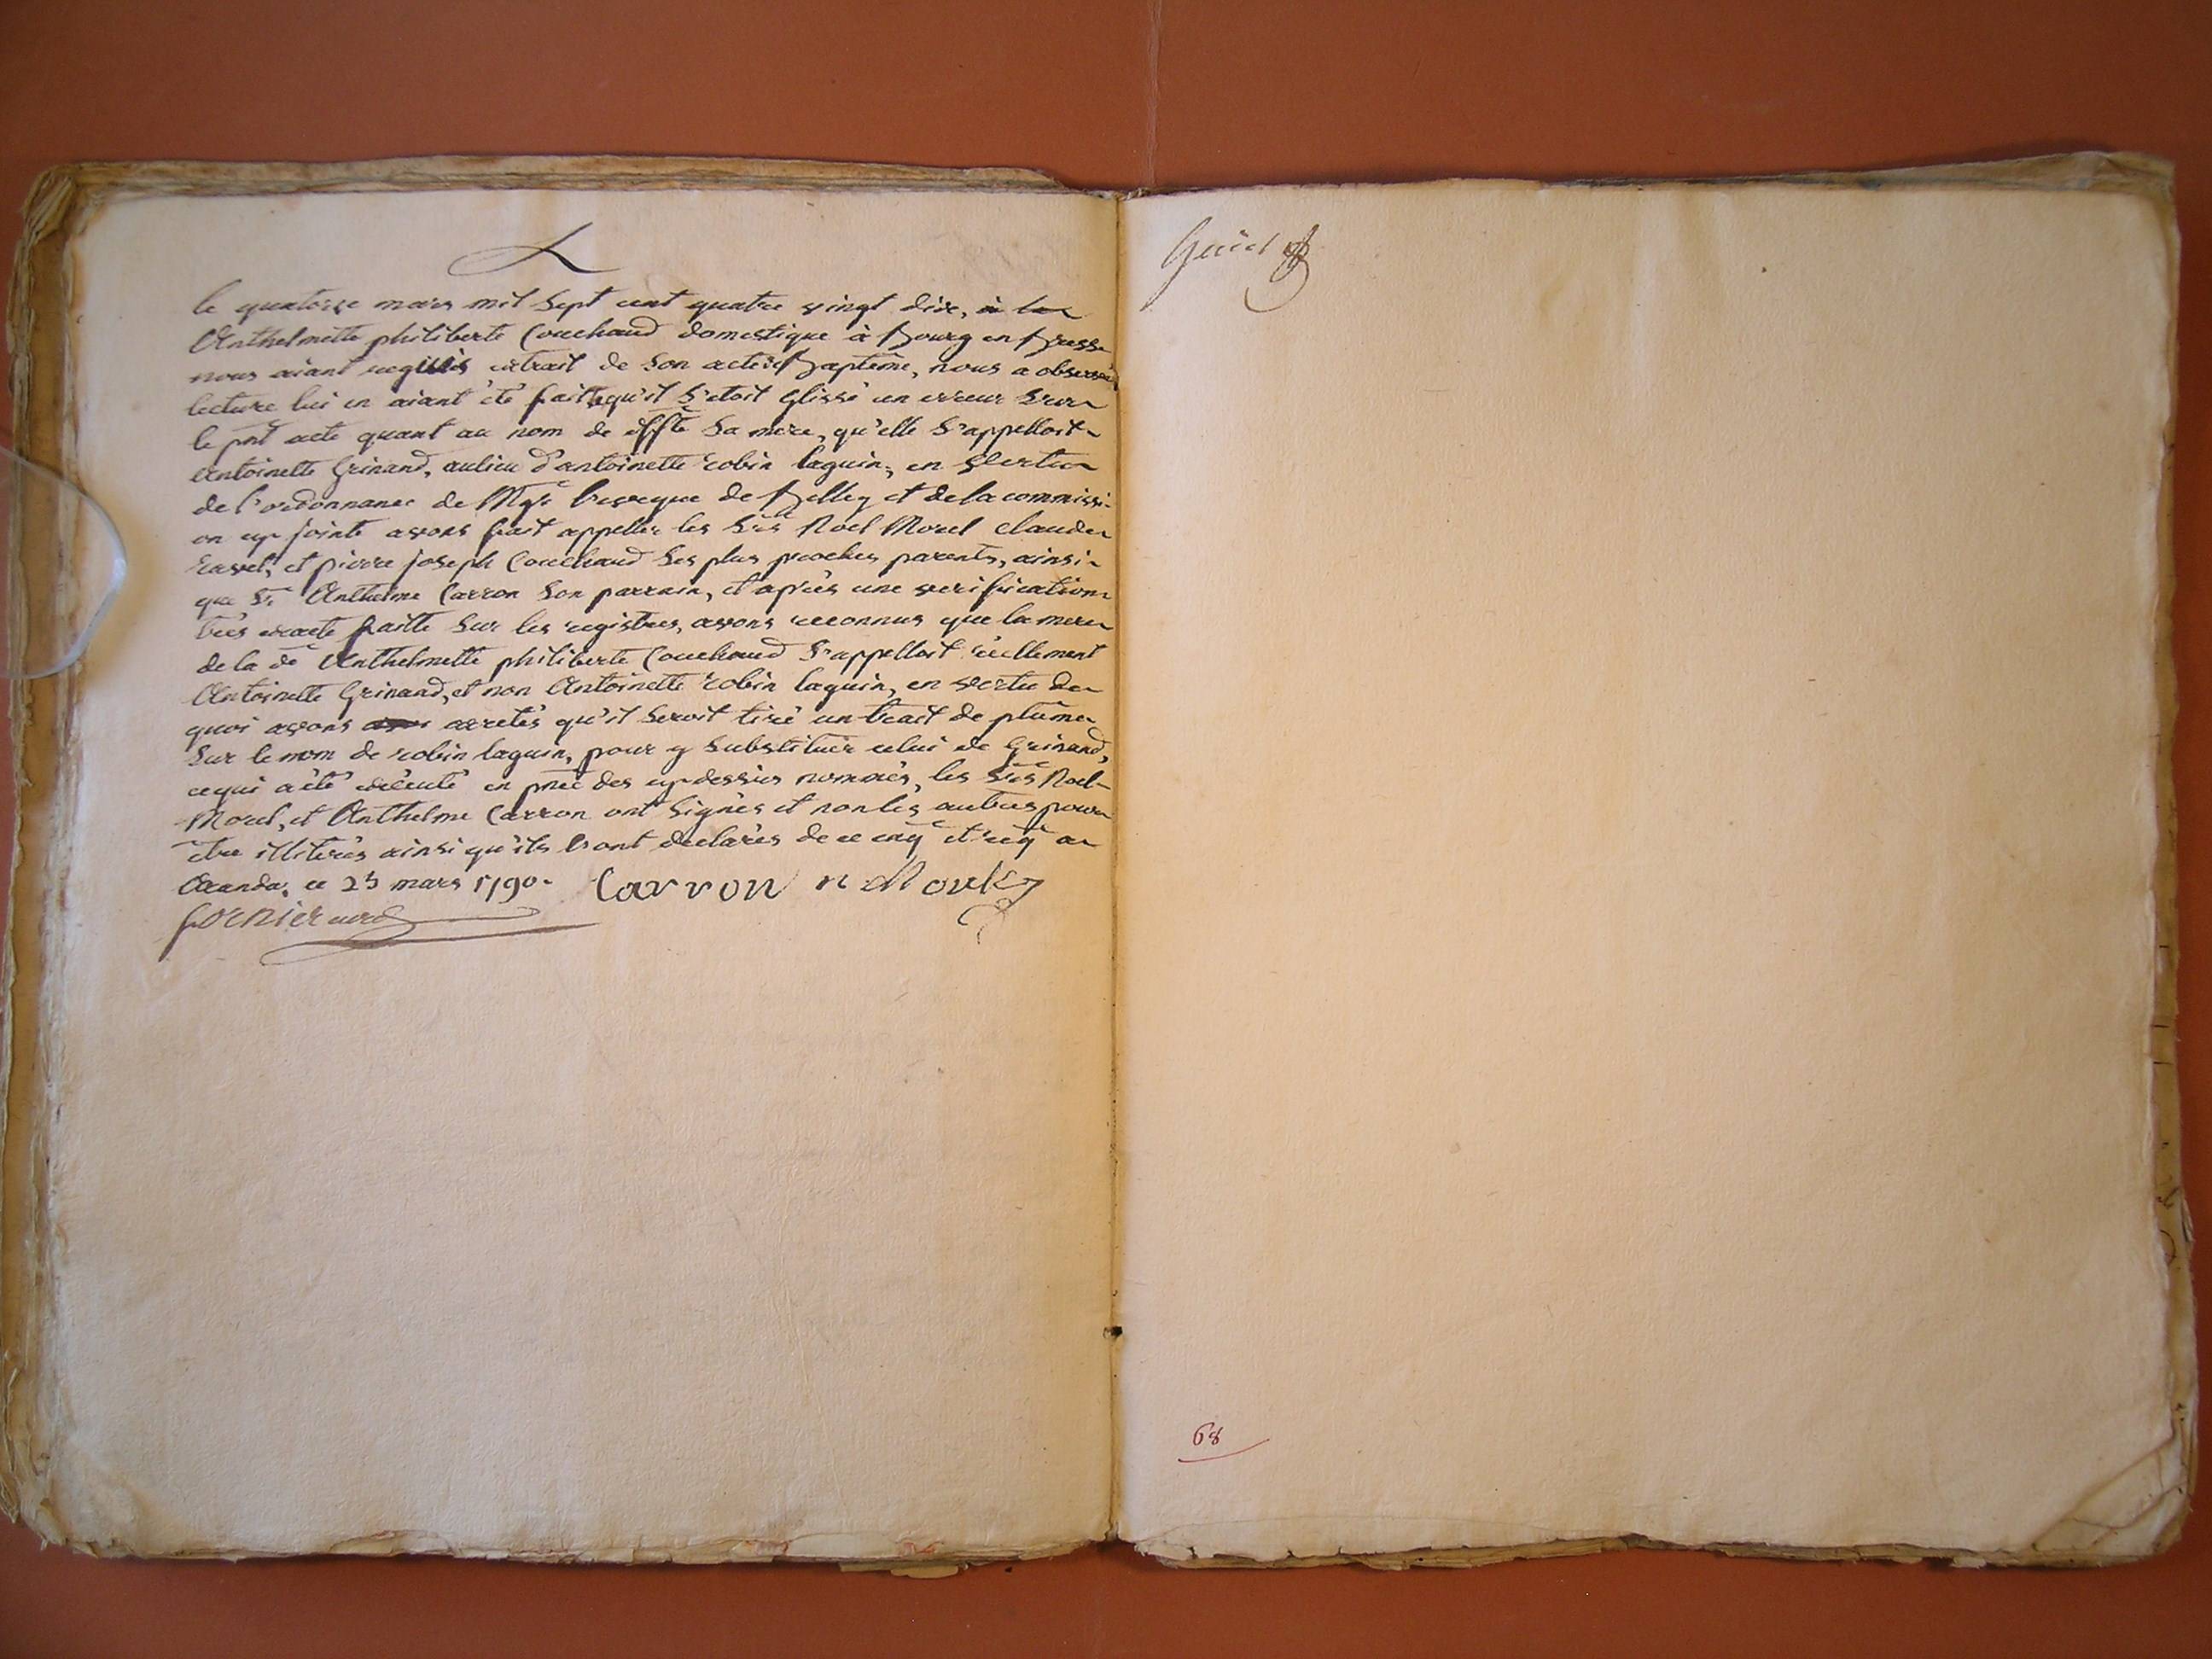 le quatorze mars mil sept cent quatre vingt dix, à la
Anthelmette philiberte Couchaud domestique à Bourg en Bresse
nous aiant requis extrait de son acte de Baptême, nous a observé
lecture lui en aiant été faitte qu'il s'étoit glissé un erreur sur
le pnt acte quant au nom de sa mere, qu'elle s'appelloit
Antoinette Grinand, aulieu d'antoinette robin laguin, en vertu
de l'ordonnance de Mgr l'evêque de Belley et de la commissi-
on cy jointe avons fait appeller les Srs Noel Morel Claude
ravet, et pierre joseph Couchaud ses plus proches parents, ainsi
que Sr Anthelme Carron son parrain, et après une verification
très exacte faitte sur les registres, avons reconnus que la mere
de la de Anthelmette philiberte Couchaud s'appelloit réellement
Antoinette Grinand, et non Antoinette robin laguin, en vertu de
quoi avons arretés qu'il seroit tiré un trait de plume
sur le nom de robin laguin, pour y substituer celui de Grinand,
cequi a été exécuté en pnce des cy dessus nommés, les Srs Noel
Morel, et Anthelme Carron ont signés et non les autres pour
être illiterés ainsi qu'ils l'ont declarés de ce enq et req a
Oranda, ce 23 mars 1790. Carron n Morel
fornier curé
Guiet
68